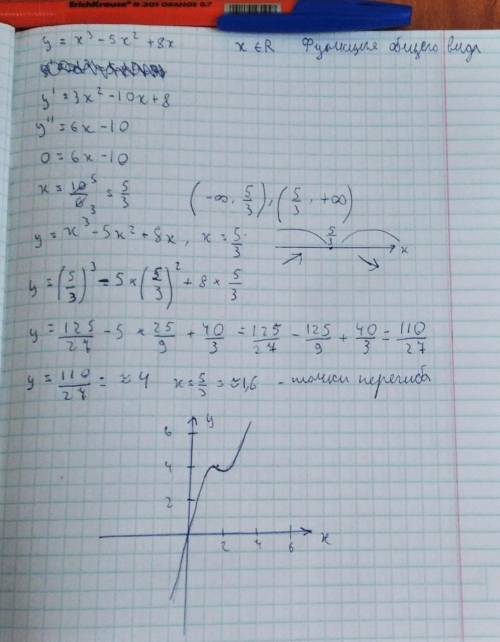 ErichKrause R-301 ORANGE 0.7
y = x³ - 5x² + 8x x ∈ R Функция общего вида
y' = 3x² - 10x + 8
y'' = 6x - 10
0 = 6x - 10
x = 10/6 5 3 = 5/3 (-∞, 5/3), (5/3, +∞)
y = x³ - 5x² + 8x, x = 5/3
5/3 x
y = (5/3)³ - 5 × (5/3)² + 8 × 5/3
y = 125/27 - 5 × 25/9 + 40/3 = 125/27 - 125/9 + 40/3 = 110/27
y = 110/27 = ≈ 4 x = 5/3 = ≈ 1,6 - точки перегиба
y
6
4
2
2 4 6 x